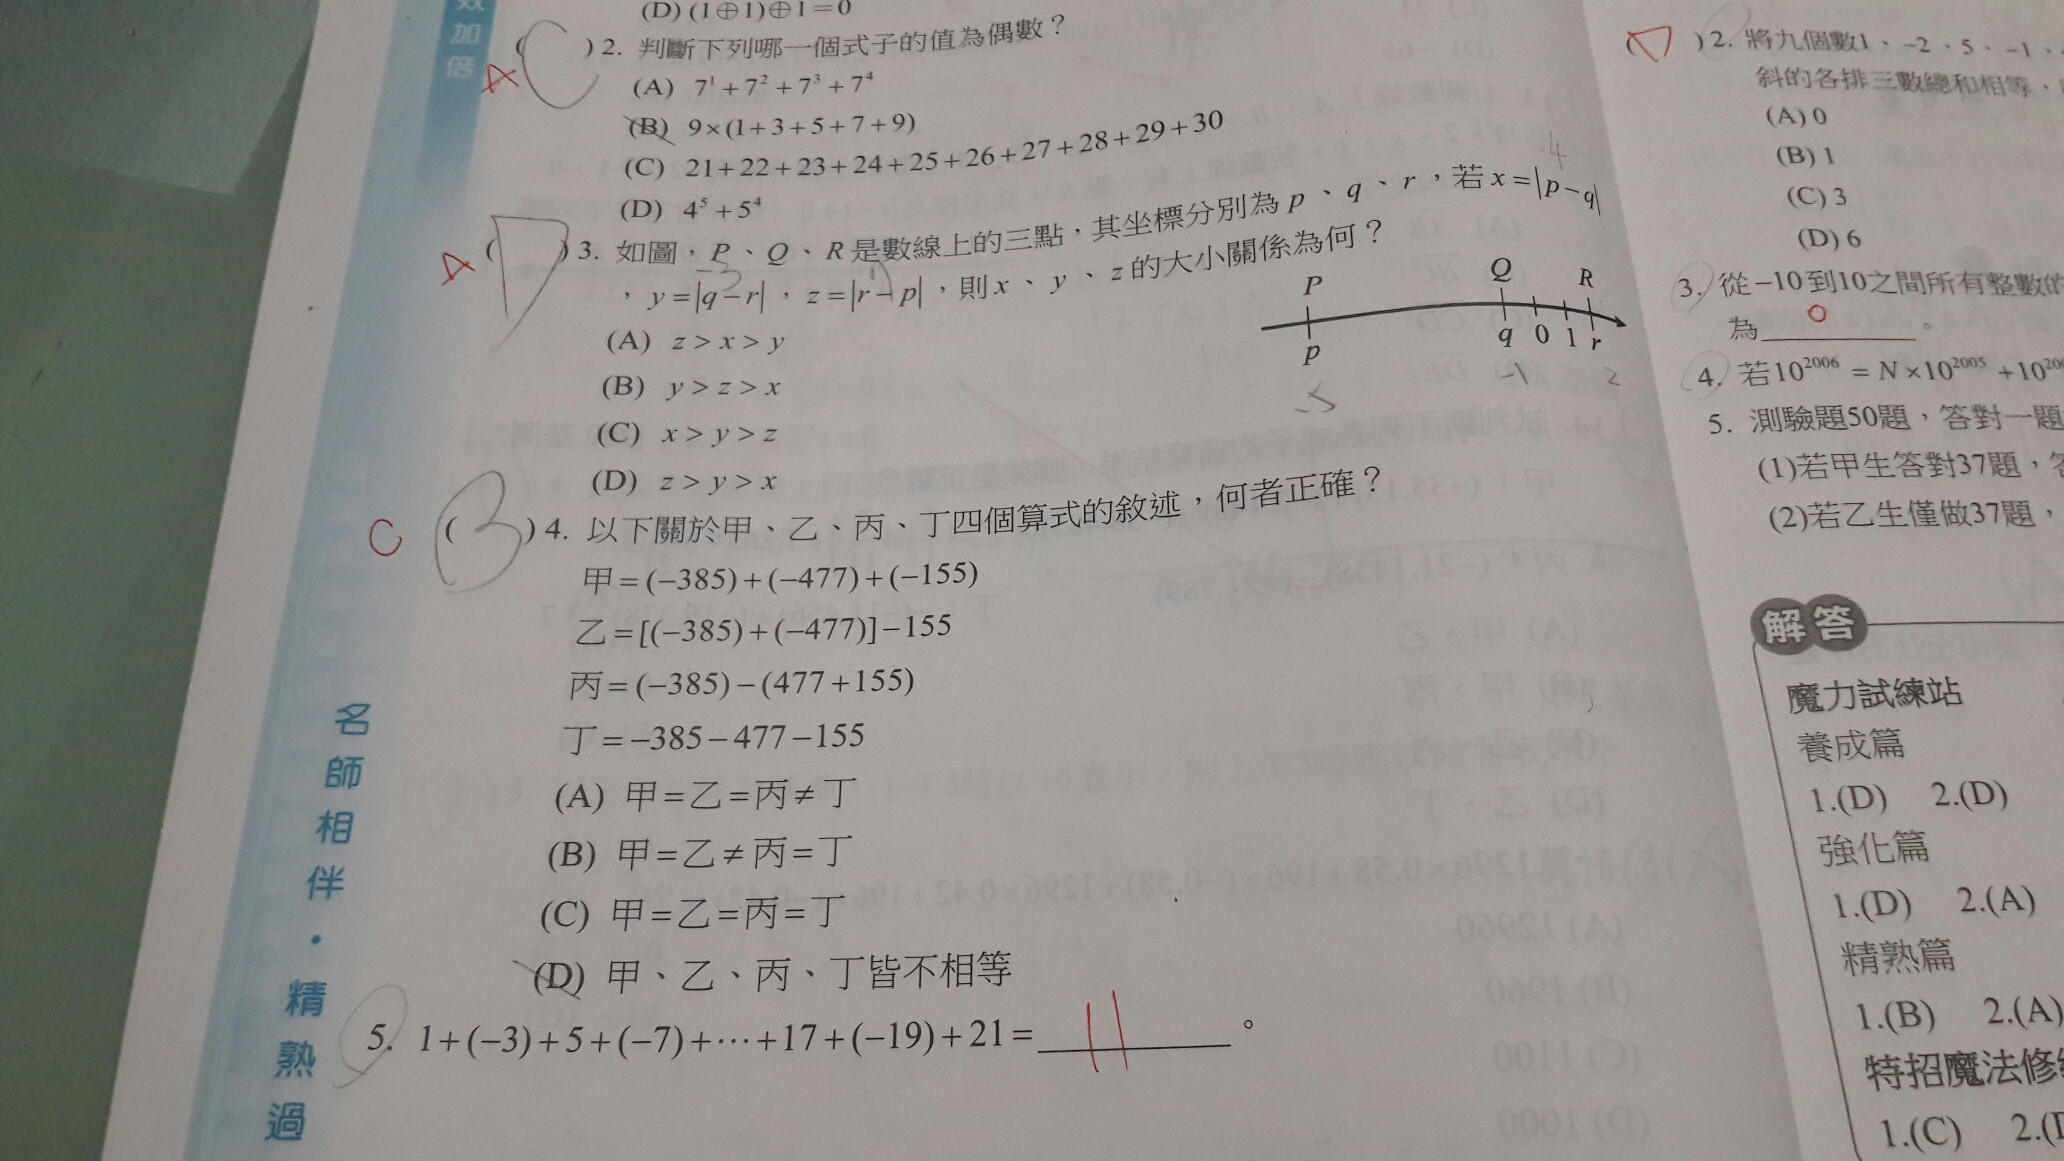 效加倍
(D) (1⊕1)⊕1=0
A ( C ) 2. 判斷下列哪一個式子的值為偶數？
(A) 7¹+7²+7³+7⁴
(B) 9×(1+3+5+7+9)
(C) 21+22+23+24+25+26+27+28+29+30
(D) 4⁵+5⁴
A ( D ) 3. 如圖，P、Q、R是數線上的三點，其坐標分別為p、q、r，若x=|p−q|
4
，y=|q−r|，z=|r−p|，則x、y、z的大小關係為何？
(A) z>x>y
(B) y>z>x
(C) x>y>z
(D) z>y>x
P Q R
p q 0 1 r
-5 -1 2
C ( B ) 4. 以下關於甲、乙、丙、丁四個算式的敘述，何者正確？
甲=(−385)+(−477)+(−155)
乙=[(−385)+(−477)]−155
丙=(−385)−(477+155)
丁=−385−477−155
(A) 甲=乙=丙≠丁
(B) 甲=乙≠丙=丁
(C) 甲=乙=丙=丁
(D) 甲、乙、丙、丁皆不相等
5. 1+(−3)+5+(−7)+⋯+17+(−19)+21= 11 。
名師相伴・精熟過
( ) 2. 將九個數1、−2、5、−1、
斜的各排三數總和相等，
(A) 0
(B) 1
(C) 3
(D) 6
3. 從−10到10之間所有整數的
為 0 。
4. 若10²⁰⁰⁶=N×10²⁰⁰⁵+10
5. 測驗題50題，答對一題
(1)若甲生答對37題，
(2)若乙生僅做37題，
解答
魔力試練站
養成篇
1.(D) 2.(D)
強化篇
1.(D) 2.(A)
精熟篇
1.(B) 2.(A)
特招魔法修
1.(C) 2.